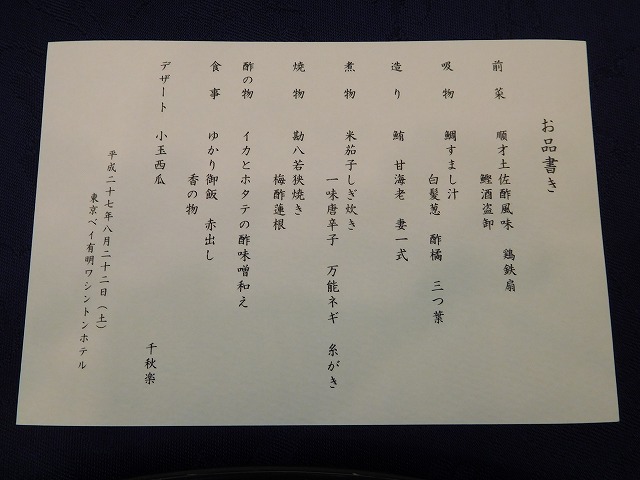 お品書き
前菜　順才土佐酢風味　鶏鉄扇
鰹酒盗卸
吸物　鯛すまし汁
白髪葱　酢橘　三つ葉
造り　鮪　甘海老　妻一式
煮物　米茄子しぎ炊き
一味唐辛子　万能ネギ　糸がき
焼物　勘八若狭焼き
梅酢蓮根
酢の物　イカとホタテの酢味噌和え
食事　ゆかり御飯　赤出し
香の物
デザート　小玉西瓜
千秋楽
平成二十七年八月二十二日（土）
東京ベイ有明ワシントンホテル